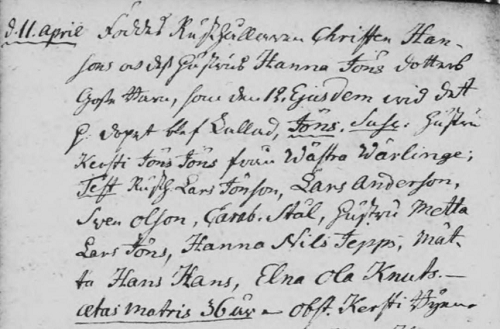 d. 11. April Föddes Rusthållaren Christen Han-
sons och dess Hustrus Hanna Jöns dotters
Goße Barn, som den 12. Ejusdem wid dett
h. dopet blef kallad, Jöns. Susc. Hustru
Kersti Jöns Jöns från Wästra Wärlinge;
Test Rusth. Lars Jönson, Lars Anderson,
Swen Olson, Carab. Stål, Hustru Metta
Lars Jöns, Hanna Nils Jepps, Mät-
ta Hans Hans, Elna Ola Knuts. —
ætas matris 36 år — Obst. Kersti